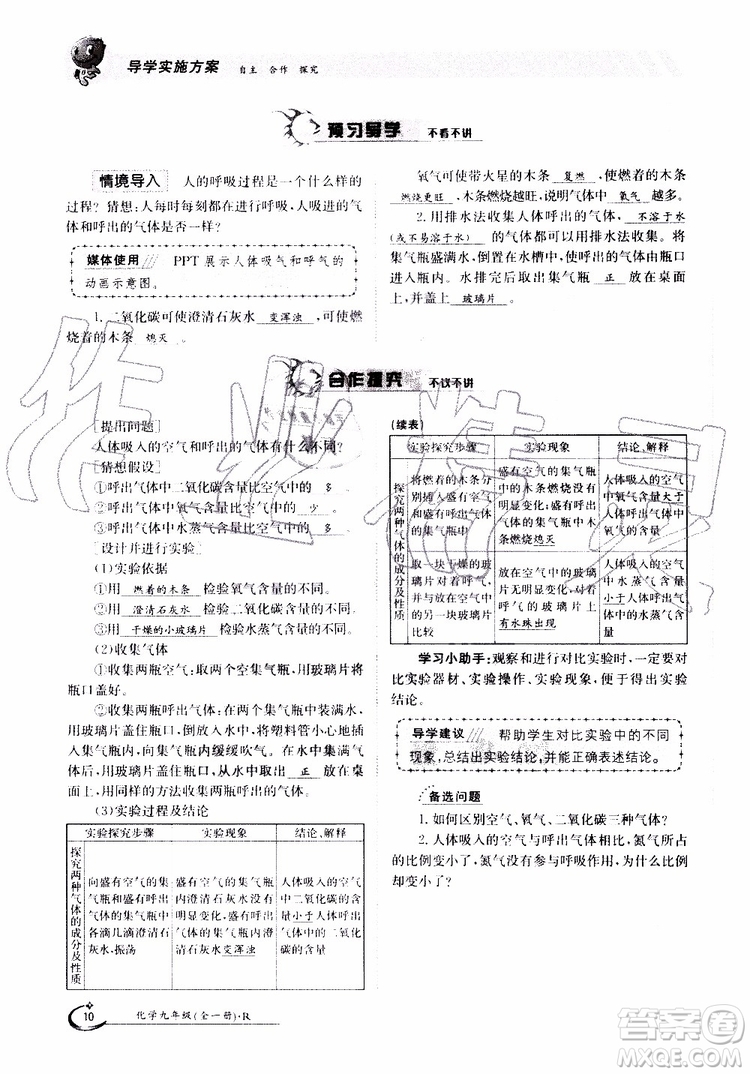 导学实施方案 自主 合作 探究
预习导学 不看不讲
情境导入 人的呼吸过程是一个什么样的
过程？猜想：人每时每刻都在进行呼吸，人吸进的气
体和呼出的气体是否一样？
媒体使用 PPT展示人体吸气和呼气的
动画示意图。
1.二氧化碳可使澄清石灰水 变浑浊 ，可使燃
烧着的木条 熄灭 。
氧气可使带火星的木条 复燃 ，使燃着的木条
燃烧更旺，木条燃烧越旺，说明气体中 氧气 越多。
2.用排水法收集人体呼出的气体， 不溶于水
(或不易溶于水) 的气体都可以用排水法收集。将
集气瓶盛满水，倒置在水槽中，使气体由瓶口
进入瓶内。水排完后取出集气瓶 正 放在桌面
上，并盖上 玻璃片 。
合作探究 不议不讲
[提出问题]
人体吸入的空气和呼出的气体有什么不同？
[猜想假设]
①呼出气体中二氧化碳含量比空气中的 多
②呼出气体中氧气含量比空气中的 少 。
③呼出气体中水蒸气含量比空气中的 多 。
[设计并进行实验]
(1)实验依据
①用 燃着的木条 检验氧气含量的不同。
②用 澄清石灰水 检验二氧化碳含量的不同。
③用 干燥的小玻璃片 检验水蒸气含量的不同。
(2)收集气体
①收集两瓶空气：取两个集气瓶，用玻璃片将
瓶口盖好。
②收集两瓶呼出气体：取两个集气瓶装满水，
用玻璃片盖住瓶口，倒放入水中，将塑料管小心地
插入集气瓶内，向集气瓶内缓缓吹气。集满气后，
用玻璃片盖住瓶口，取出 正 放在桌面上。用
同样的方法收集两瓶呼出气体。
(3)实验过程及结论
实验探究步骤 实验现象 结论、解释
探究两种气体的成分及性质
向盛有空气的集气瓶和盛有呼出气体的集气瓶中各滴几滴澄清石灰水，振荡
盛有空气的集气瓶内澄清石灰水无明显变化，盛有呼出气体的集气瓶内澄清石灰水变浑浊
人体吸入的空气中二氧化碳的含量小于人体呼出的气体中二氧化碳的含量
(续表)
实验探究步骤 实验现象 结论、解释
探究两种气体的成分及性质
将燃着的木条分别插入盛有空气和盛有呼出气体的集气瓶中
盛有空气的集气瓶中的木条燃烧没有明显变化；盛有呼出气体的集气瓶中木条燃烧熄灭
人体吸入的空气中氧气的含量大于人体呼出的气体中氧气的含量
取一块干燥的玻璃片对着呼气，并与放在空气中的另一块玻璃片比较
放在空气中的玻璃片无明显变化，对着呼气的玻璃片上有水珠出现
人体吸入的空气中水蒸气的含量小于人体呼出的气体中水蒸气的含量
学习小助手：观察和进行对比实验时，一定要对
比实验器材、实验操作、实验现象，方便得出实验
结论。
导学建议 帮助学生对比实验中的不同
现象，总结出实验结论，并能正确表述结论。
备选问题
1.如何区别空气、氧气、二氧化碳三种气体？
2.人体吸入的空气与呼出气体相比，氮气所占
的比例变小了，氮气没有参与呼吸作用，为什么比例
却变小了？
10 化学九年级(全一册)·R
答案圈
MXQE.COM